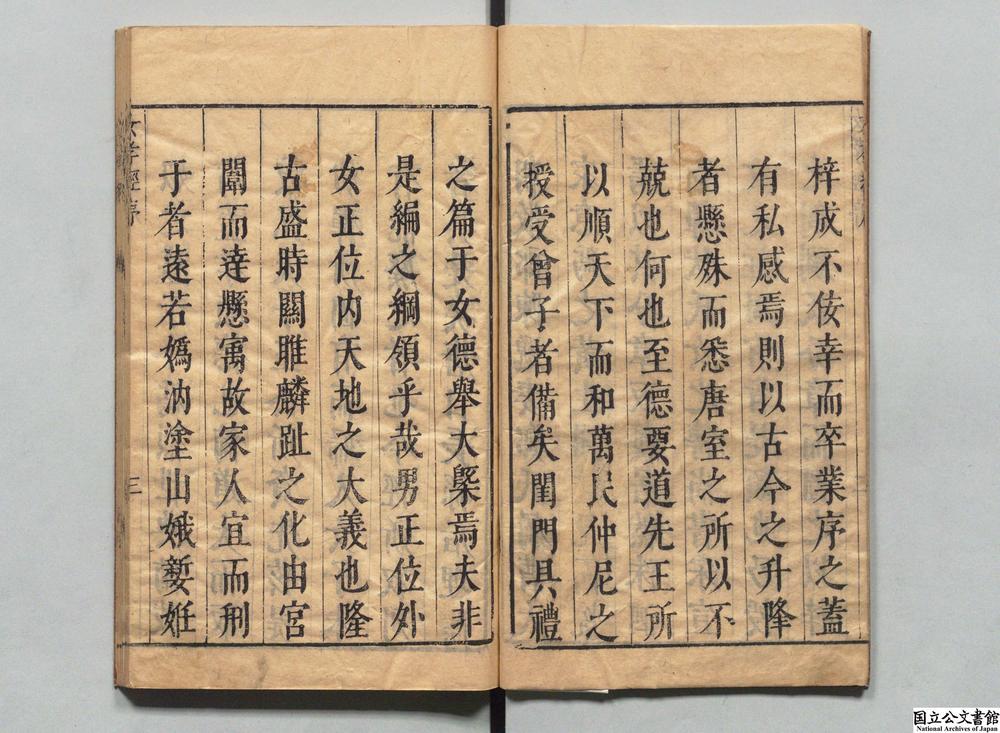 梓成不佞幸而卒業序之蓋
有私感焉則以古今之升降
者懸殊而悉唐室之所以不
兢也何也至德要道先王所
以順天下而和萬民仲尼之
授受曾子者備矣閨門具禮
之篇于女德舉大槩焉夫非
是編之綱領乎哉男正位外
女正位内天地之大義也隆
古盛時關雎麟趾之化由宮
闈而達懸寓故家人宜而刑
于者遠若嬀汭塗山娥嫛姙
女孝經序
三
国立公文書館
National Archives of Japan